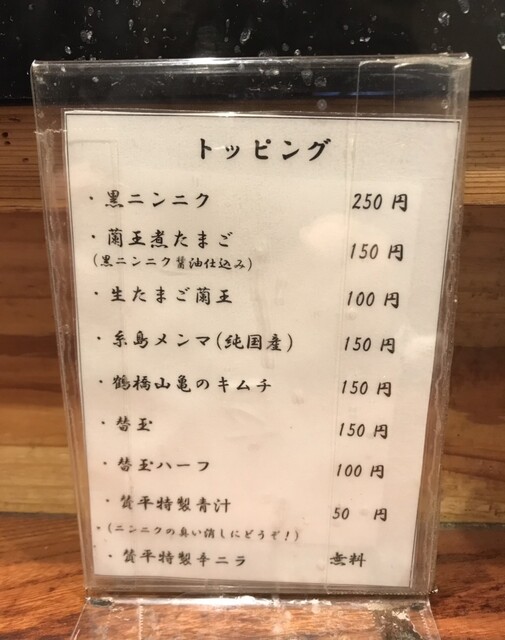 トッピング
・黒ニンニク 250 円
・蘭王煮たまご 150 円
(黒ニンニク醤油仕込み)
・生たまご蘭王 100 円
・糸島メンマ(純国産) 150 円
・鶴橋山亀のキムチ 150 円
・替玉 150 円
・替玉ハーフ 100 円
・賛平特製青汁 50 円
・(ニンニクの臭い消しにどうぞ!)
・賛平特製辛ニラ 無料